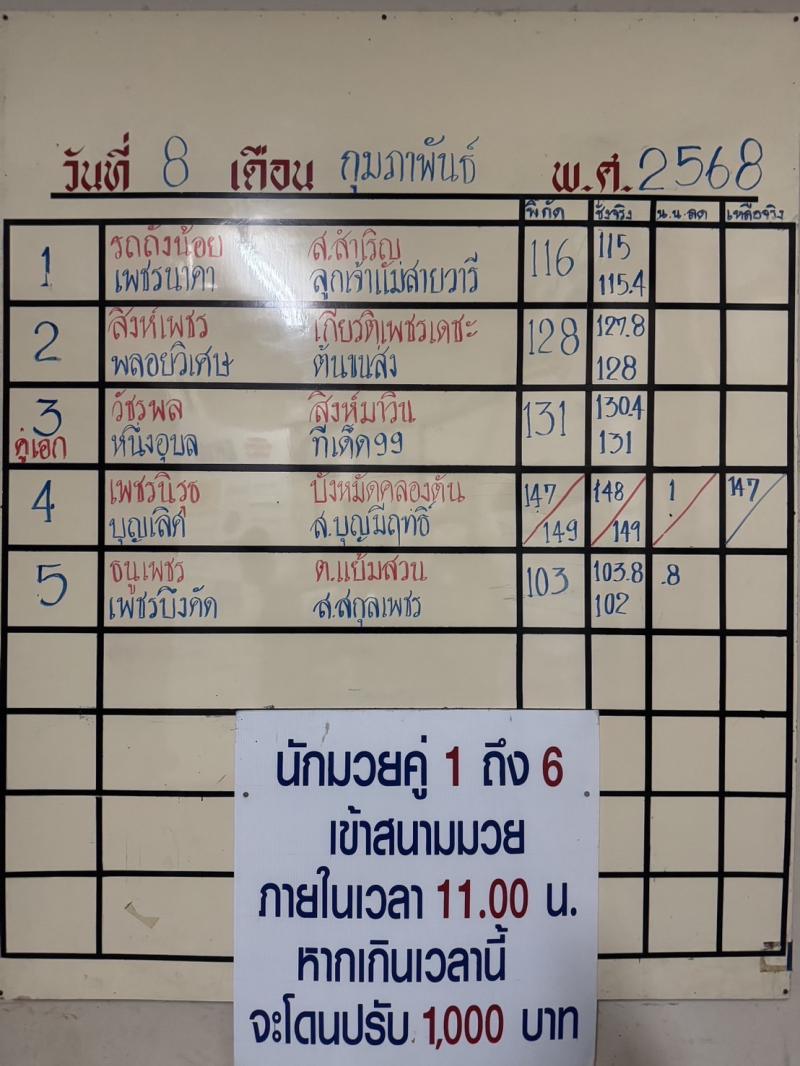 วันที่ 8 เดือน กุมภาพันธ์ พ.ศ. 2568
พิกัด ชั่งจริง น.น.ลด เหลือจริง
1 รถถังน้อย ส.สำเริญ 116 115
เพชรนาคา ลูกเจ้าแม่สายวารี 115.4
2 สิงห์เพชร เกียรติเพชรเดชะ 128 127.8
พลอยวิเศษ ต้นขนส่ง 128
3 วัชรพล สิงห์มาวิน 131 130.4
คู่เอก หนึ่งอุบล ทีเด็ด99 131
4 เพชรนิรุธ บังหมัดคลองตัน 147 148 1 147
บุญเลิศ ส.บุญมีฤทธิ์ 149 149
5 ธนูเพชร ต.แย้มสวน 103 103.8 .8
เพชรบึงคัด ส.สกุลเพชร 102
นักมวยคู่ 1 ถึง 6
เข้าสนามมวย
ภายในเวลา 11.00 น.
หากเกินเวลานี้
จะโดนปรับ 1,000 บาท